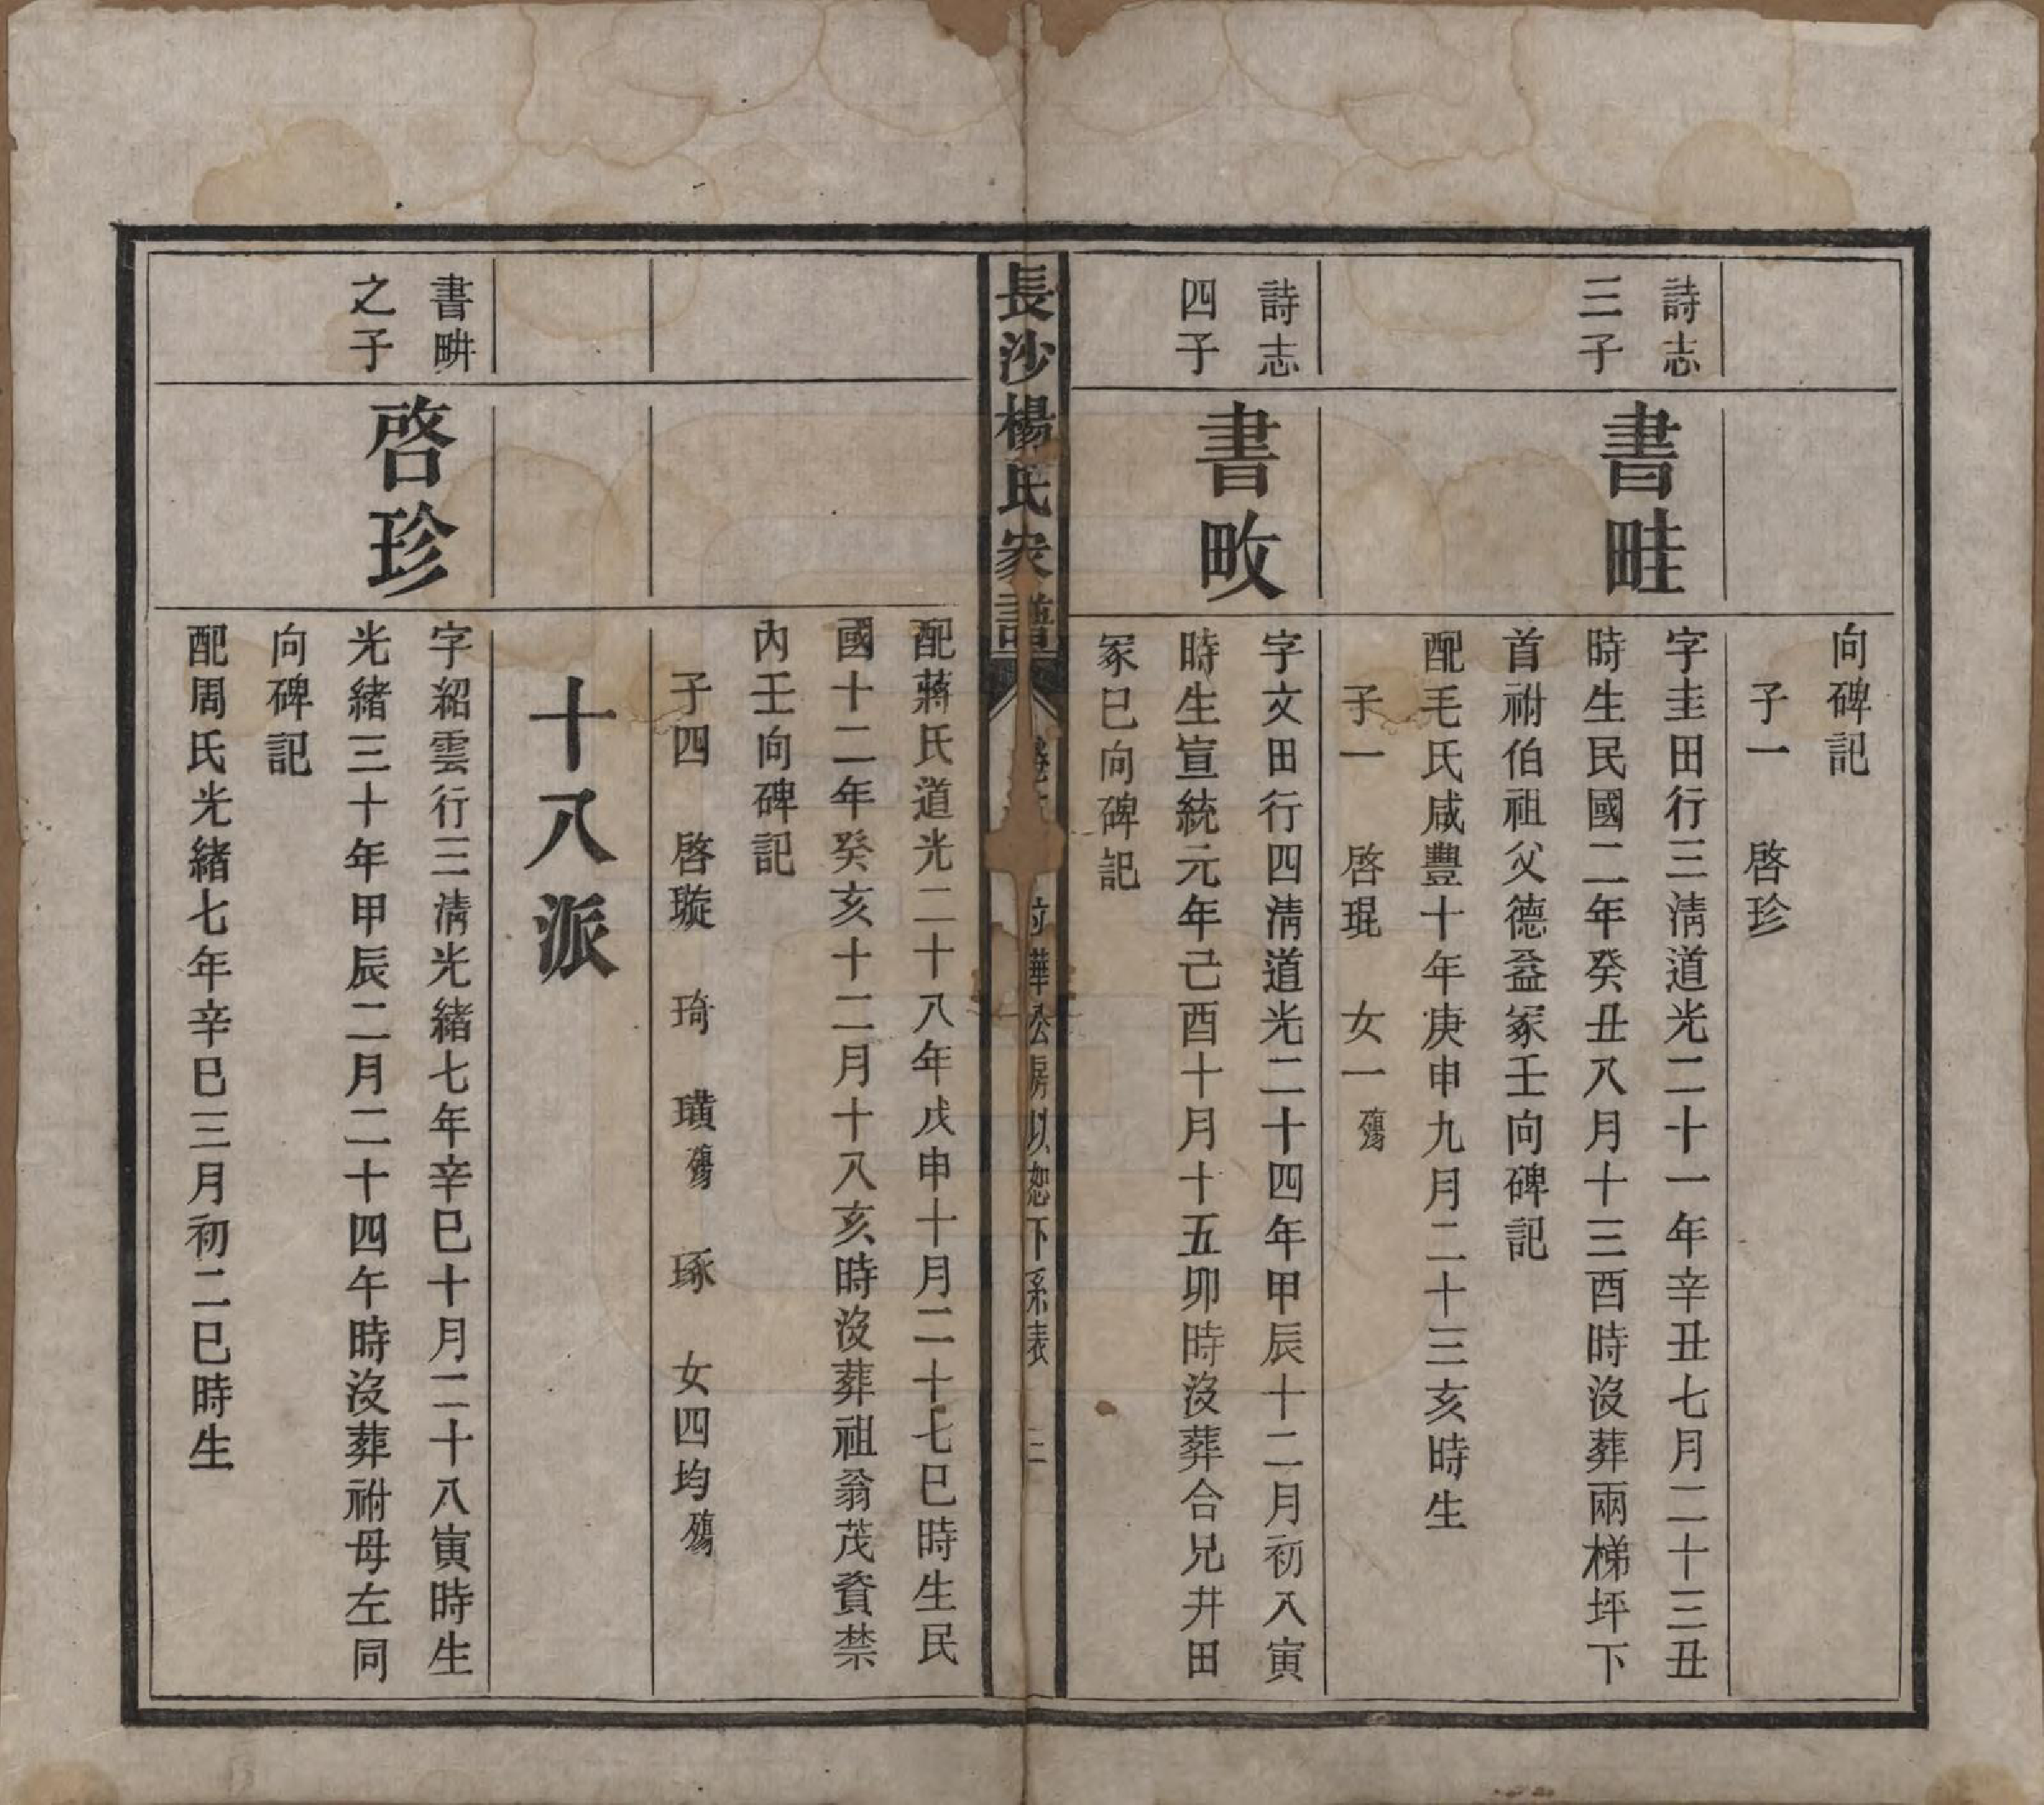 向碑記
子一　啓珍
詩志
三子
書畦
字圭田行三淸道光二十一年辛丑七月二十三丑
時生民國二年癸丑八月十三酉時沒葬兩梯坪下
首祔伯祖父德益冢壬向碑記
配毛氏咸豐十年庚申九月二十三亥時生
子一　啓琨　女一殤
詩志
四子
書畋
字文田行四淸道光二十四年甲辰十二月初八寅
時生宣統元年己酉十月十五卯時沒葬合兄井田
冢巳向碑記
長沙楊氏家譜
華公房以恕下系表　三
配蔣氏道光二十八年戊申十月二十七巳時生民
國十二年癸亥十二月十八亥時沒葬祖翁茂資禁
內壬向碑記
子四　啓璇　琦　璜殤　琢　女四均殤
十八派
書畊
之子
啓珍
字紹雲行三淸光緒七年辛巳十月二十八寅時生
光緒三十年甲辰二月二十四午時沒葬祔母左同
向碑記
配周氏光緒七年辛巳三月初二巳時生